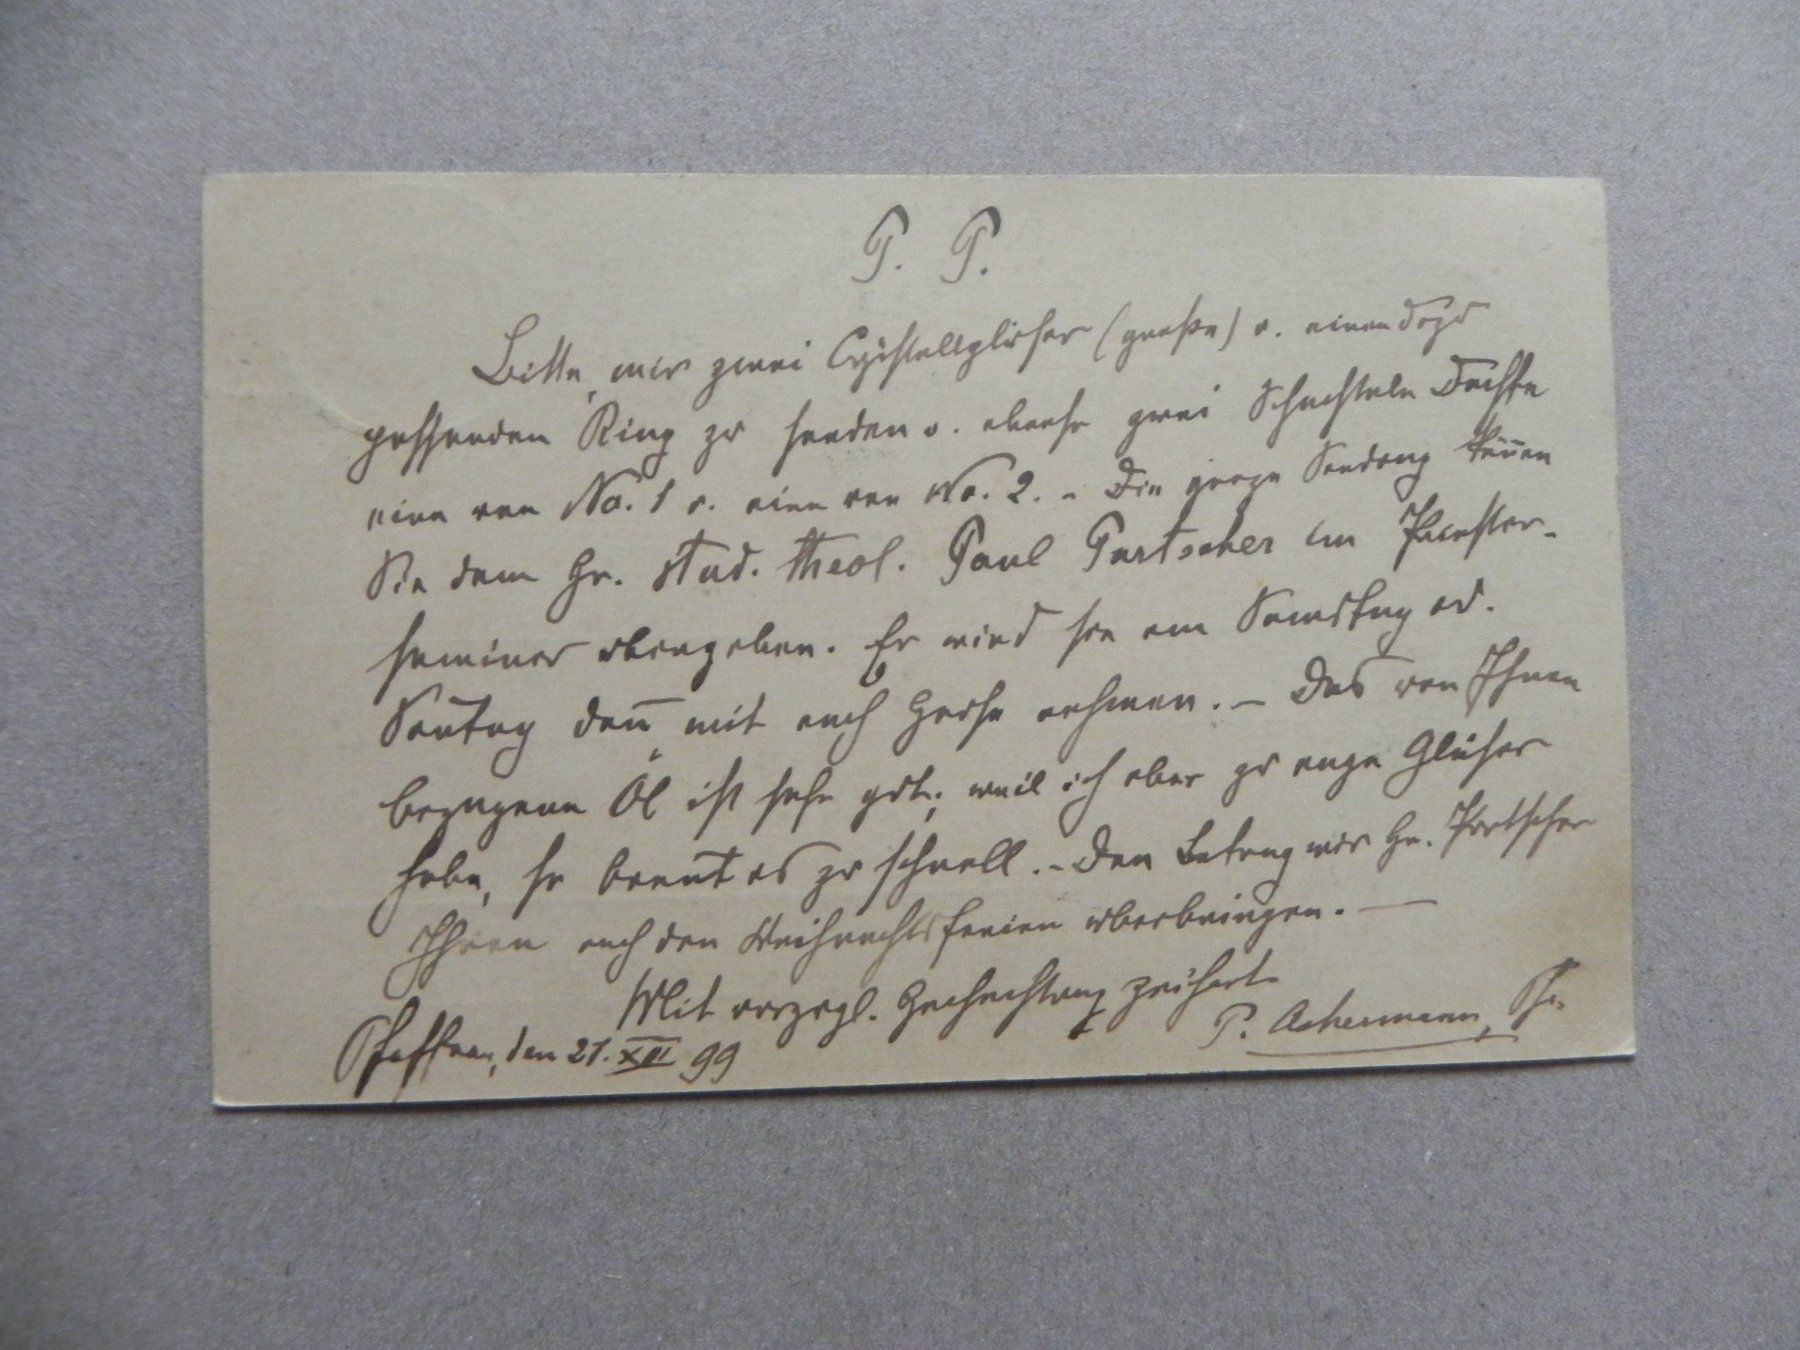 P. P.
Bitte, mir zwei Cristallgläser (große) u. einen dazu
passenden Ring zu senden u. ebenso zwei Schachteln Dochte
eine von No. 1 u. eine von No. 2. – Die ganze Sendung können
Sie dem Hr. stud. theol. Paul Partscher im Priester-
seminar übergeben. Er wird sie am Samstag od.
Son̄tag dan̄ mit nach Hause nehmen. – Das von Ihnen
bezogene Öl ist sehr gut; weil ich aber zu enge Gläser
habe, so brennt es zu schnell. – Den Betrag wir Hr. Partscher
Ihnen nach den Weihnachtsferien überbringen. —
Mit vorzügl. Hochachtung zeichnet
den 21. XII 99
P. Ackermann,